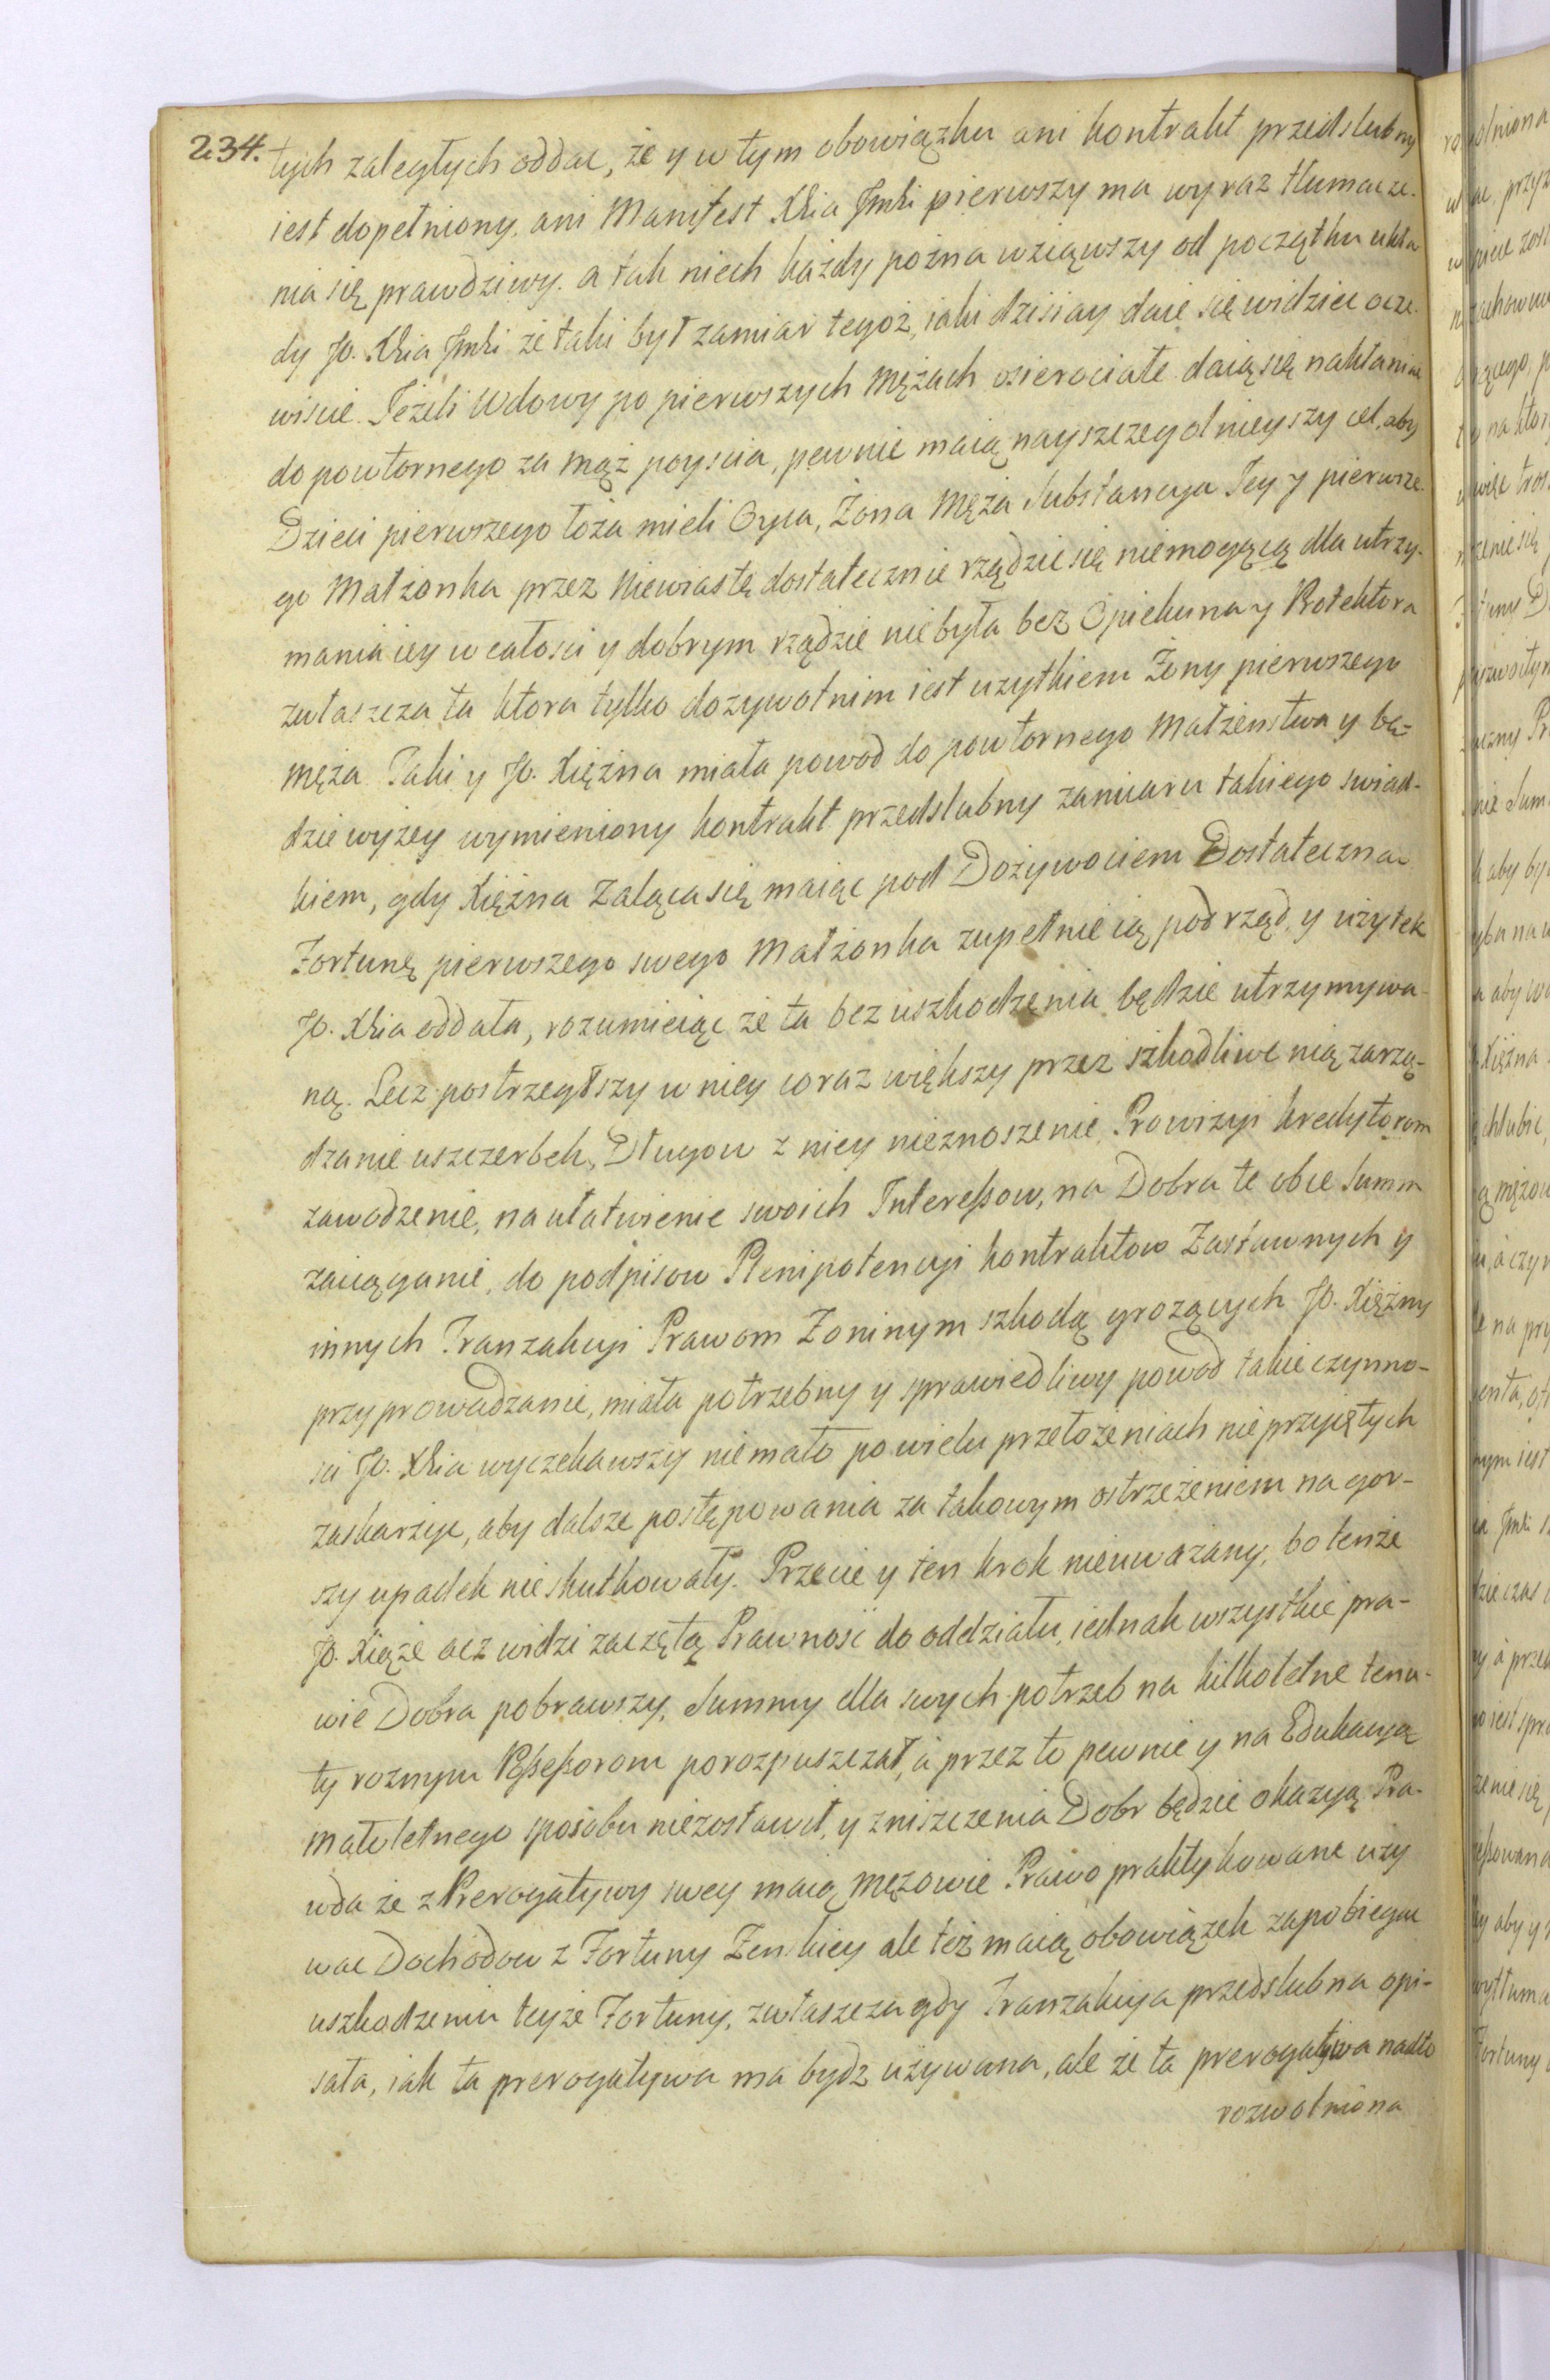 234.
tych zaległych oddac, że y w tym obowiązku ani kontrakt przedslubny
iest dopełniony, ani Manifest Xcia Jmci pierwszy ma wyraz tłumacze-
nia się prawdziwy. a tak niech każdy pozna wziąwszy od początku ukła
dy Jo. Xcia Jmci że taki był zamiar tegoż, iaki dzisiay daie się widziec oczе-
wiscie. Jeżeli Wdowy po pierwszych Mężach osierociałe daią się nakłaniac
do powtornego za mąż poyscia, pewnie maią nayszczegolnieyszy cel, aby
Dzieci pierwszego łoża mieli Oyca, Żona Męża Substancya Jey y pierwsze-
go Małżonka przez Niewiastę dostatecznie rządzic się niemogącą dla utrzy-
mania iey w całosci y dobrym rządzie niebyła bez Opiekuna y Protektora
zwłaszcza ta ktora tylko dożywotnim iest użytkiem Żony pierwszego
męża. Taki y Jo. Xiężna miała powod do powtornego Małżenstwa y bę-
dzie wyżey wymieniony kontrakt przedslubny zamiaru takiego swiad-
kiem, gdy Xiężna Żaląca się maiąc pod Dożywociem Dostateczna
Fortunę pierwszego swego Małżonka zupełnie ią pod rząd, y użytek
Jo. Xcia oddała, rozumieiąc że ta bez uszkodzenia będzie utrzymywa-
ną. Lecz postrzegłszy w niey coraz większy przez szkodliwe nią zarzą-
dzanie uszczerbek, Długow z niey nieznoszenie, Prowizyi kredytorom
zawodzenie, na ułatwienie swoich Interessow, na Dobra te obce Summ
zaciąganie, do podpisow Plenipotencyi kontraktow Zastawnych y
innych Tranzakcyi Prawom Żoninym szkodą grożących Jo. Xiężny
przyprowadzanie, miała potrzebny y sprawiedliwy powod takie czynno-
sci Jo. Xcia wyczekawszy niemało po wielu przełożeniach nieprzyiętych
zaskarżyc, aby dalsze postępowania za takowym ostrzeżeniem na gor-
szy upadek nieskutkowały. Przecie y ten krok nieuważany, bo tenże
Jo. Xiąże acz widzi zaczętą Prawnosc do oddziału, iednak wszystkie pra-
wie Dobra pobrawszy, Summy dla swych potrzeb na kilkoletne tenu-
ty roznym Possessorom porozpuszczał, a przez to pewnie y na Edukacyą
małoletnego sposobu niezostawił, y zniszczenia Dobr będzie okazyą Pra-
wda że z Prerogatywy swey maią mężowie Prawo praktykowane uży
wac Dochodow z Fortuny Żenskiey ale też maią obowiązek zapobiegac
uszkodzeniu teyże Fortuny, zwłaszcza gdy Tranzakcya przedslubna opi-
sała, iak ta prerogatywa ma bydz używana, ale że ta prerogatywa nadto
rozwolniona